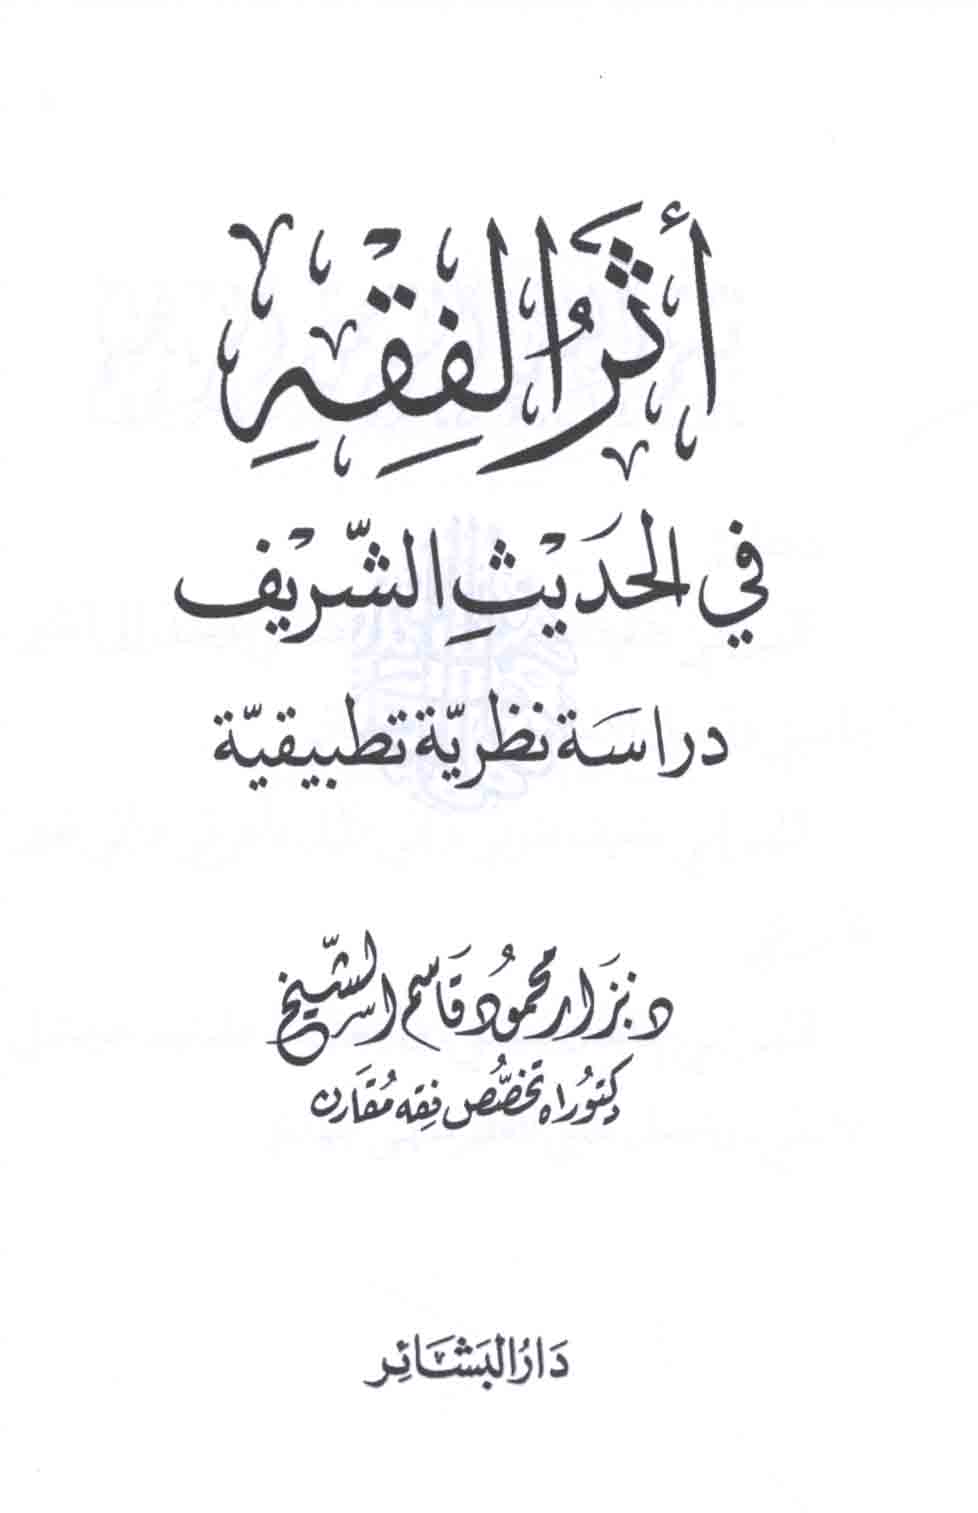 أَثَرُ الفِقْهِ
في الحَديْثِ الشّرِيْف
دراسَة نظريّة تطبيقيّة
د. نزَار محمُود قَاسم الشّيخ
دكتورُاه تخصُّص فِقه مُقَارن
دَارُ البَشَائِر